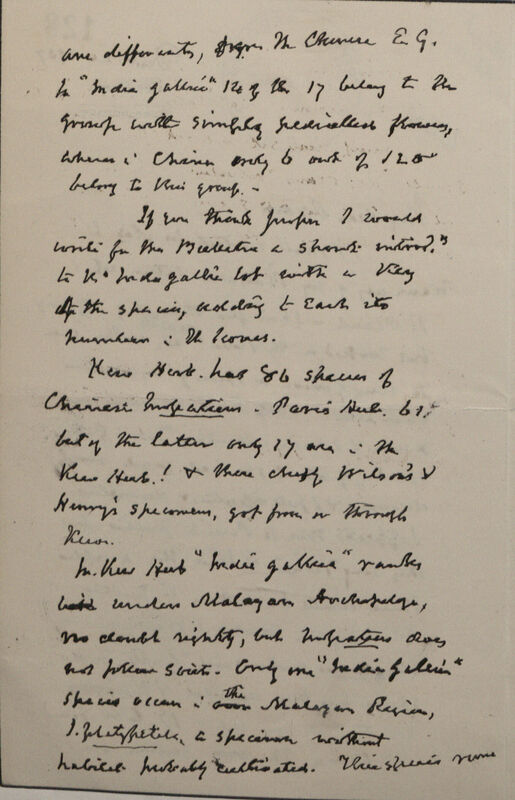 are different, from the Chinese E.G.
In "Indie gallici" 12 of the 17 belong to the
group with simply pedicelled flowers,
whereas i China only 6 out of 120
belong to this group.-
If you think proper I would
write for the Bulletin a short introd.n
to the "Indo gallic lot with a Key
to the species, adding to each its
number i the Icones.
Kew Herb. has 86 species of
Chinese Impatiens. Paris Herb. 61.
but of the latter only 17 are i the
Kew Herb.! & these chiefly Wilson's &
Henry's specimens, got from or through
Kew.
In Kew Herb "Indie gallici" ranks
under Malayan Archipelago,
no doubt rightly, but Impatiens does
not follow suit. Only one "Indie Gallici"
species occurs i the Malayan Region,
I. platypetala, a specimen without
habitat probably cultivated. This species